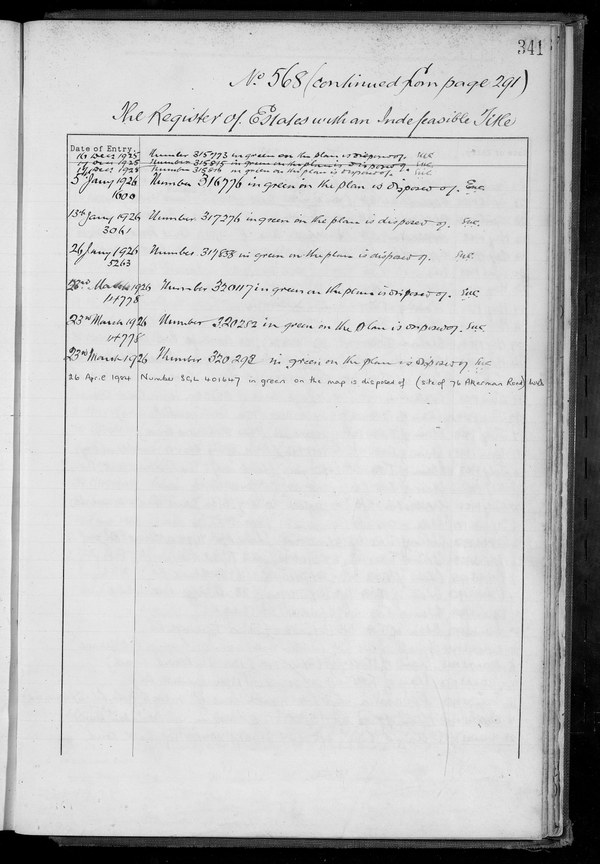 341
No. 568 (continued from page 291)
The Register of Estates with an Indefeasible Title
Date of Entry.
16 Decr 1925 Number 315773 in green on the plan is disposed of.
17 Decr 1925 Number 315815 in green on the plan is disposed of
Decr 1925 Number 315816 in green on the plan is disposed of.
5th Jany 1926 Number 316776 in green on the plan is disposed of.
1600
13th Jany 1926 Number 317276 in green on the plan is disposed of.
3061
26 Jany 1926 Number 317833 in green on the plan is disposed of.
5263
23rd March 1926 Number 320117 in green on the plan is disposed of.
14778
23rd March 1926 Number 320282 in green on the plan is disposed of.
14778
23rd March 1926 Number 320298 in green on the plan is disposed of
26 April 1984 Number SGL 401647 in green on the map is disposed of (site of 76 Akerman Road)